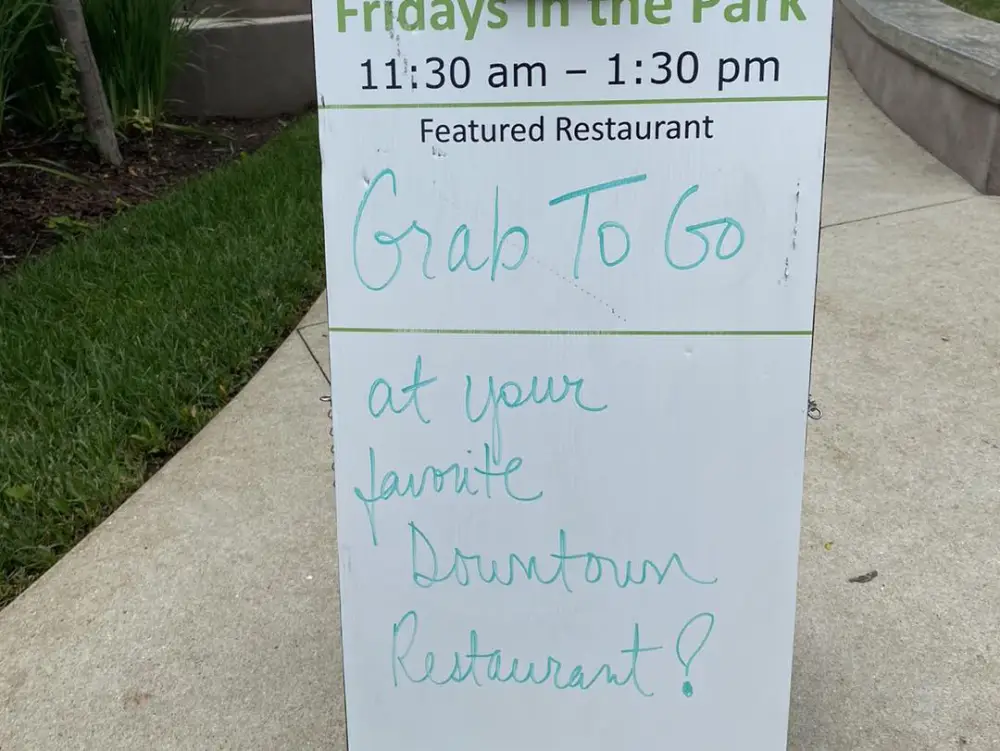 Fridays in the Park
11:30 am – 1:30 pm
Featured Restaurant
Grab To Go
at your
favorite
Downtown
Restaurant!